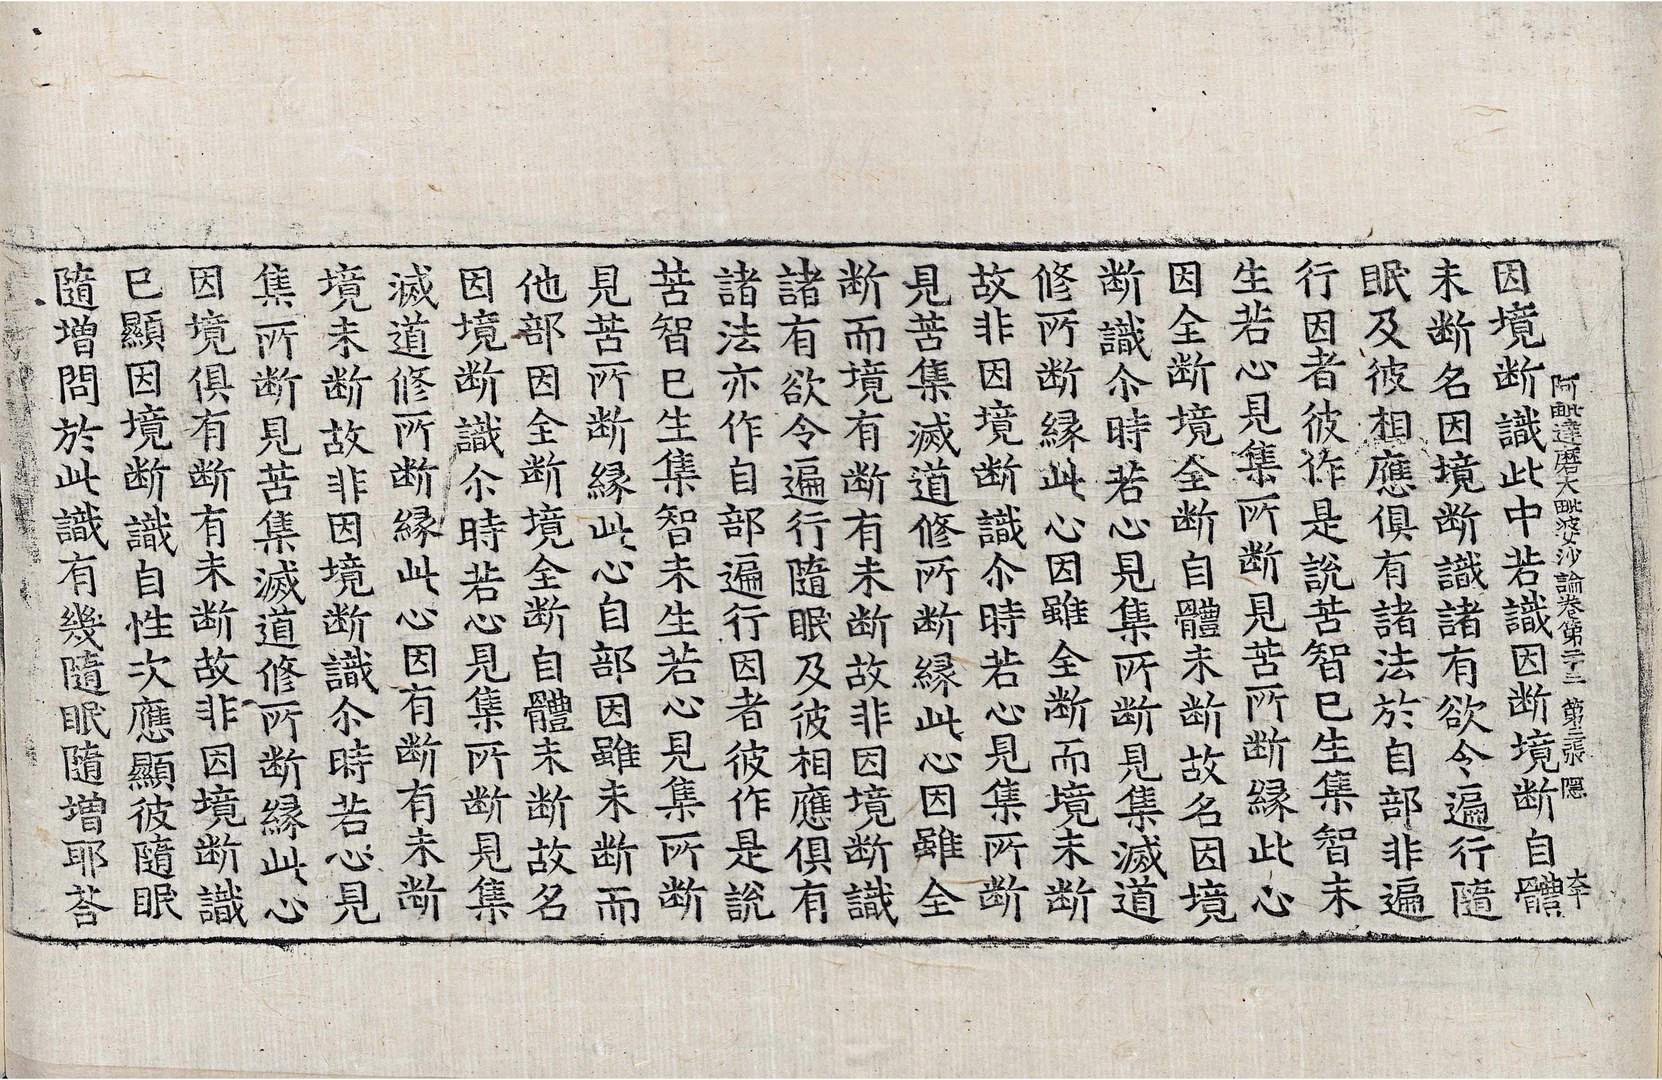 阿毗達磨大毗婆沙論卷第二十二 第二張 隱
因境断識此中若識因断境断自體
未断名因境断識諸有欲令遍行隨
眠及彼相應俱有諸法於自部非遍
行因者彼作是說苦智已生集智未
生若心見集所断見苦所断縁此心
因全断境全断自體未断故名因境
断識尒時若心見集所断見集滅道
修所断縁此心因雖全断而境未断
故非因境断識尒時若心見集所断
見苦集滅道修所断縁此心因雖全
断而境有断有未断故非因境断識
諸有欲令遍行隨眠及彼相應俱有
諸法亦作自部遍行因者彼作是說
苦智已生集智未生若心見集所断
見苦所断縁此心自部因雖未断而
他部因全断境全断自體未断故名
因境断識尒時若心見集所断見集
滅道修所断縁此心因有断有未断
境未断故非因境断識尒時若心見
集所断見苦集滅道修所断縁此心
因境俱有断有未断故非因境断識
已顯因境断識自性次應顯彼隨眠
隨増問於此識有幾隨眠隨増耶荅